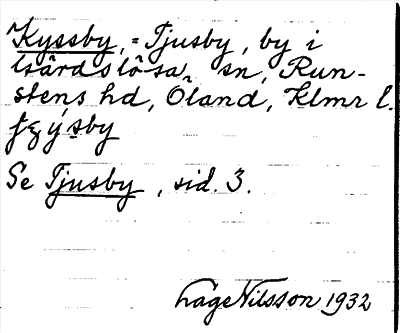 Kyssby, = Tjusby, by i
Gärdslösa sn, Run-
stens hd, Öland, Klmr l.
sby
Se Tjusby, sid. 3.
Lage Nilsson 1932